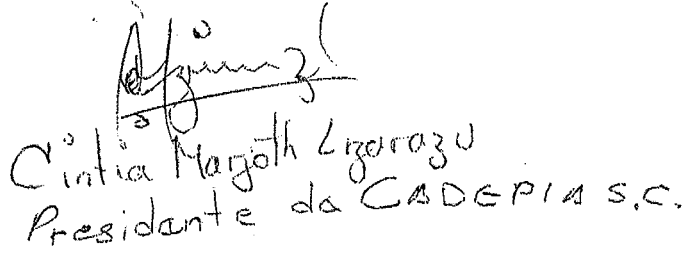 Cintia Margoth Lizarazu
Presidante da CADEPIA S.C.